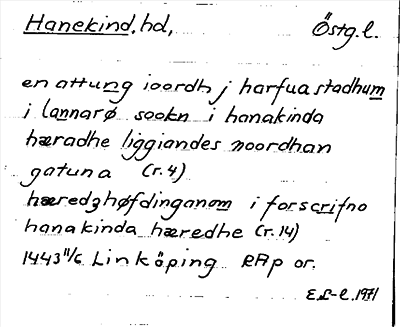 Hanekind, hd, Östg.l.
en attung ioordh j harfuastadhum
i lannarø sookn i hanakinda
hæradhe liggiandes noordhan
gatuna (r. 4)
hæredzhøfdinganom i forscrifno
hanakinda hæredhe (r. 14)
1443 11/6 Linköping RAp or.
E L-l. 1971